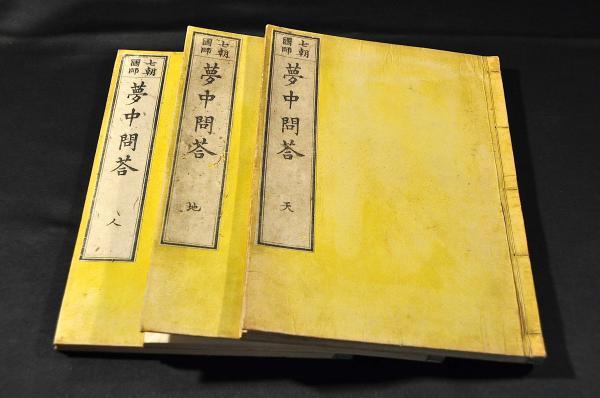 七朝
國師
夢中問答
天
七朝
國師
夢中問答
地
七朝
國師
夢中問答
人